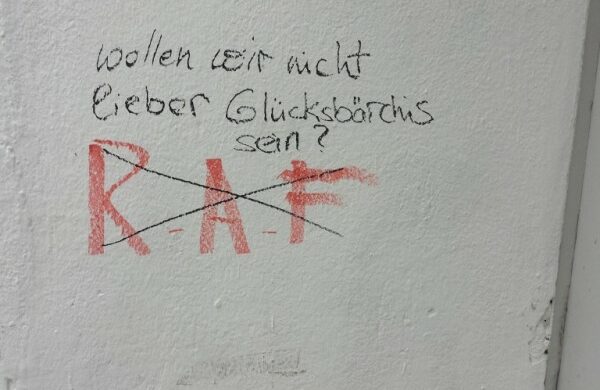 wollen wir nicht
lieber Glücksbärchis
sein?
R-A-F